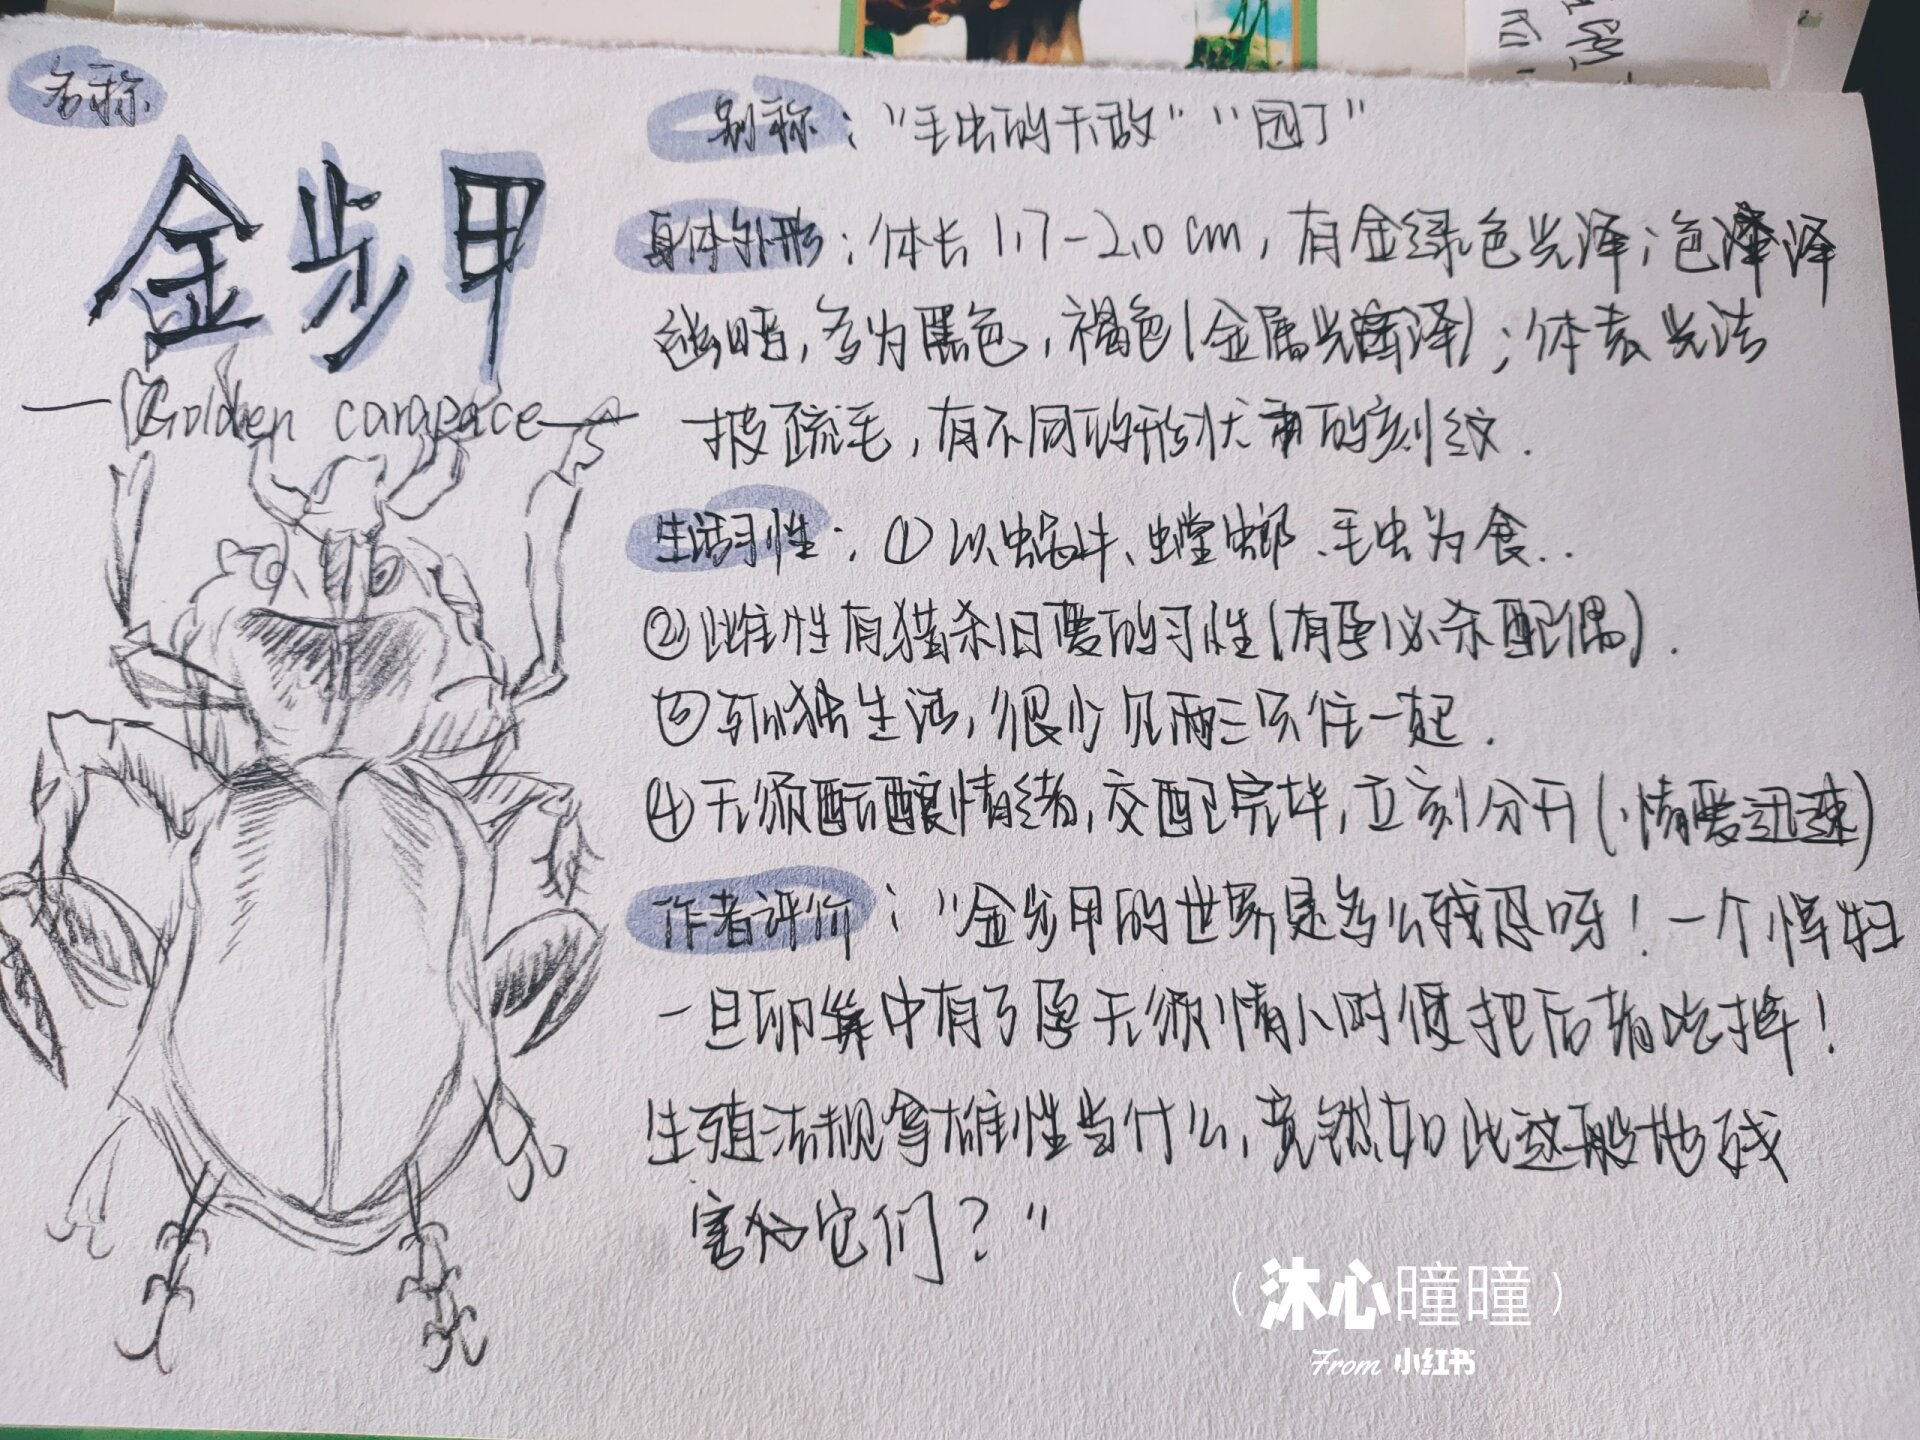 名称
金步甲
—Golden carapace—
别称："毛虫的天敌""园丁"
身体外形：体长1.7-2.0cm,有金绿色光泽;色泽
幽暗,多为黑色,褐色(金属光泽);体表光洁
披疏毛,有不同的形状的刻纹.
生活习性：①以蜗牛、螳螂、毛虫为食..
②雌性有猎杀旧爱的习性(有孕必杀配偶).
③孤独生活,很少见两三只住一起.
④无须酝酿情绪,交配完毕,立刻分开(情爱迅速)
作者评价："金步甲的世界是多么残忍呀!一个悍妇
一旦卵巢中有了孕无须情人时便把后者吃掉!
生殖法规拿雄性当什么,竟然如此这般地残
害它们?"
(沐心曈曈)
From 小红书